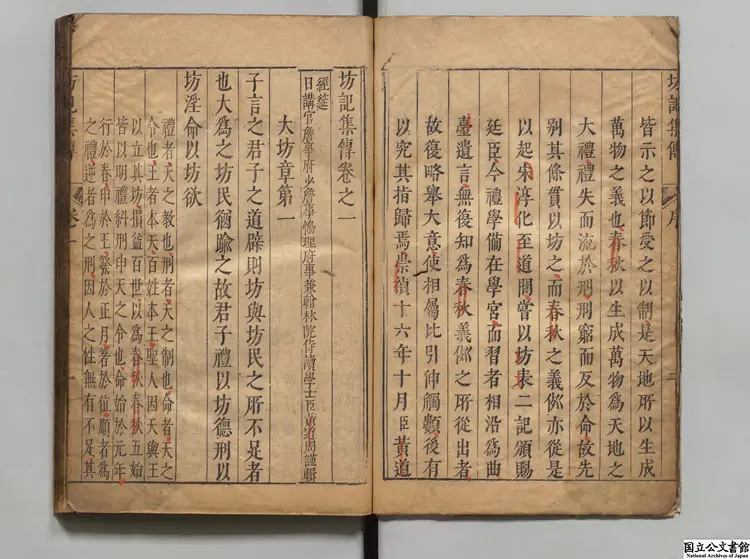 坊記集傳
序
皆示之以節愛之以制是天地所以生成
萬物之義也春秋以生成萬物為天地之
大禮禮失而流於刑刑窮而反於命故先
別其條貫以坊之而春秋之義例亦從是
以起宋淳化至道間嘗以坊表二記頒賜
廷臣今禮學備在學宮而習者相沿為曲
臺遺言無復知為春秋義例之所從出者
故復略舉大意使相屬比引伸觸類後有
以究其指歸焉崇禎十六年十月臣黃道
坊記集傳卷之一
經筵
日講官詹事府少詹事協理府事兼翰林院侍讀學士臣黃道周謹輯
大坊章第一
子言之君子之道辟則坊與坊民之所不足者
也大為之坊民猶踰之故君子禮以坊德刑以
坊淫命以坊欲
禮者天之教也刑者天之制也命者天之
令也王者本天百姓本王聖人因天與王
以立其坊損益百世以為春秋春秋五始
皆以明禮糾刑申天之令也命始於元年
行於春申於王發於正月著於位順者為
之禮逆者為之刑因人之性無有不足其
坊記集傳
卷一
一
国立公文書館
National Archives of Japan